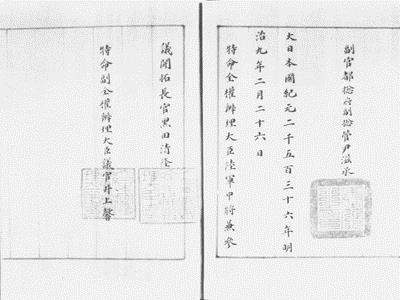 副官都摠府副摠管尹滋承
大日本國紀元二千五百三十六年明
治九年二月二十六日
特命全權辦理大臣陸軍中將兼參
議開拓長官黑田清隆
特命副全權辦理大臣議官井上馨